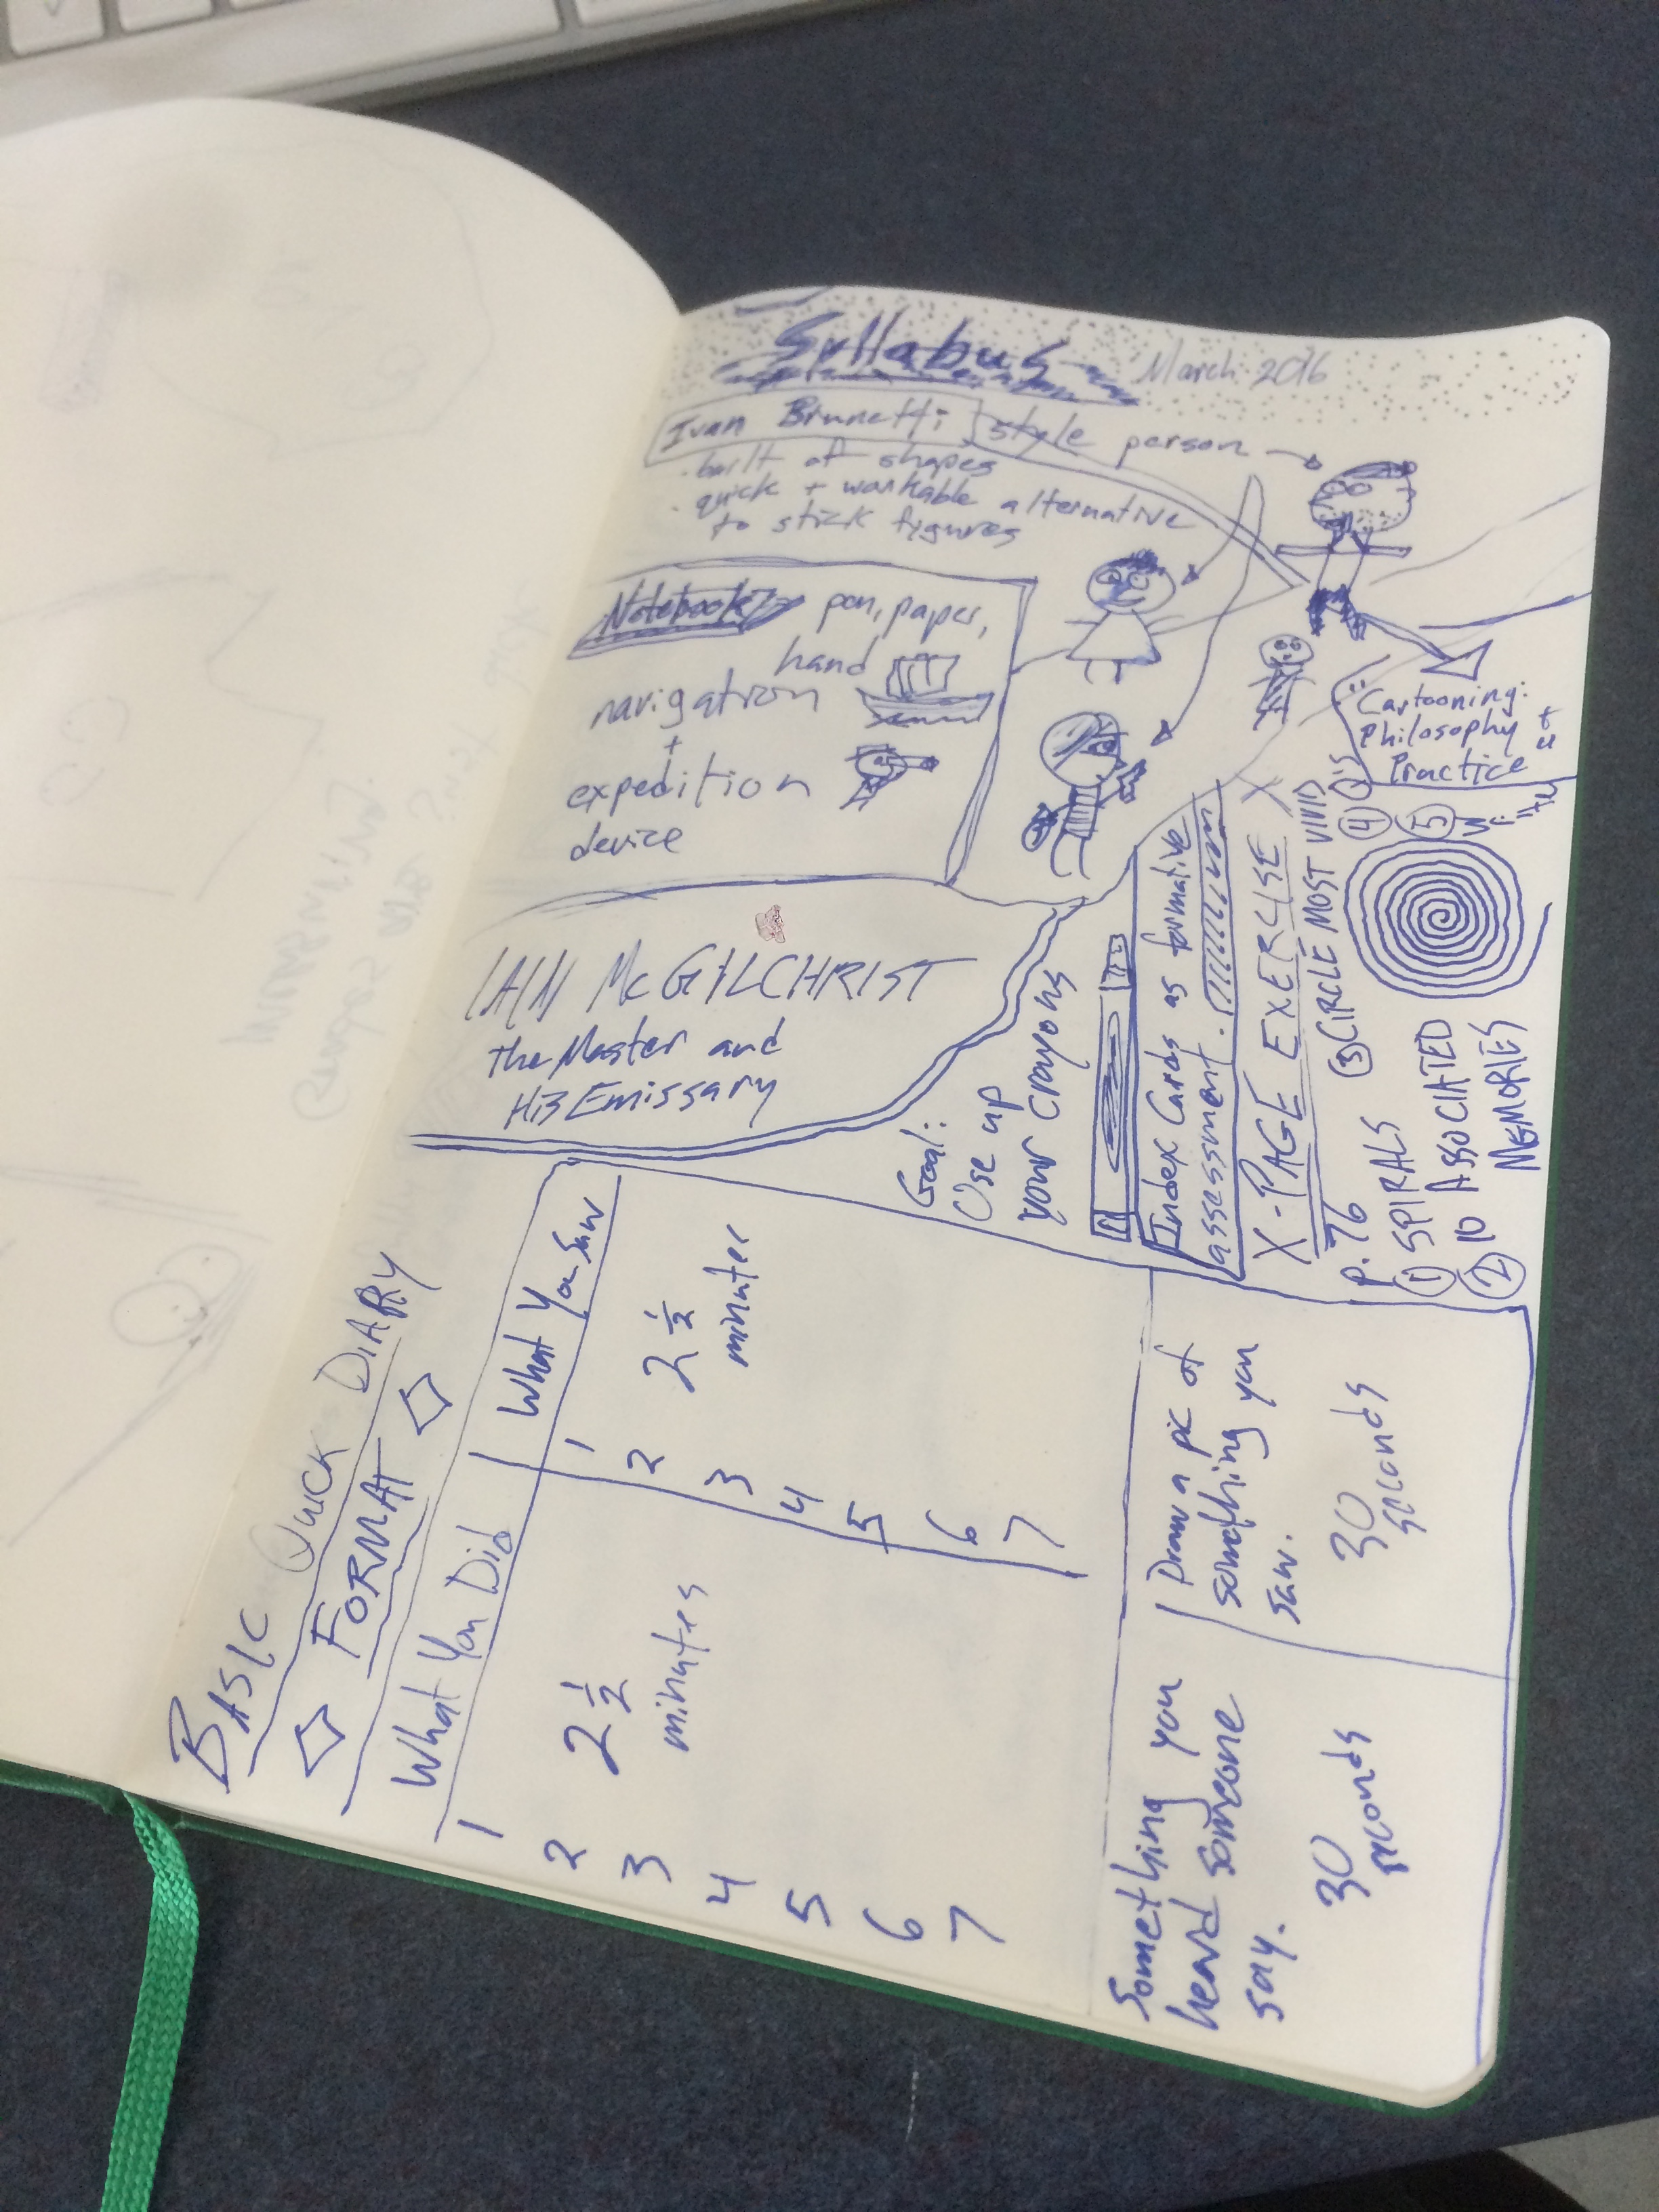 Syllabus March 2016
Ivan Brunetti style person
· built of shapes
· quick + workable alternative
to stick figures
Notebook pen, paper,
hand
navigation
+
expedition
device
"Cartooning:
Philosophy +
Practice"
IAIN McGILCHRIST
The Master and
His Emissary
Goal:
Use up
your crayons
Index Cards as formative
assessment.
X-PAGE EXERCISE X
P. 76
① SPIRALS
② 10 ASSOCIATED
MEMORIES
③ CIRCLE MOST VIVID
④ Q's
⑤
BASIC QUICK DIARY
FORMAT
What You Did
What You Saw
1
2
3
4
5
6
7
2 1/2
minutes
1
2
3
4
5
6
7
2 1/2
minutes
Something you
heard someone
say.
30
seconds
Draw a pic of
something you
saw.
30
seconds